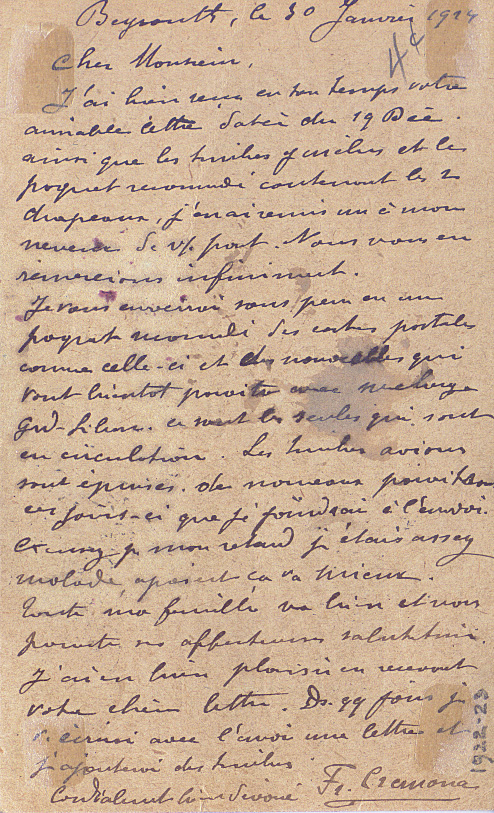 Beyrouth, le 30 Janvier 1924
4c
Cher Monsieur,
J'ai bien reçu en son temps votre
aimable lettre datée du 19 Déc.
ainsi que les timbres y inclus et le
paquet recomdé contenant les 2
drapeaux, j'en ai remis un à mon
neveu de v/ part. Nous vous en
remercions infiniment.
Je vous enverrai sous peu en un
paquet recomdé des cartes postales
comme celle-ci et des nouvelles qui
vont bientot paraitre avec surcharge
Grd-Liban. ce sont les seules qui sont
en circulation. Les timbres avions
sont épuisés. de nouveaux paraitron
ces jours-ci que je joindrai à l'envoi.
Excusez-p mon retard j'étais assez
malade, à présent ça va mieux.
Toute ma famille va bien et vous
présente ses affectueuses salutations.
J'ai eu bien plaisir en recevant
votre chère lettre. Ds. qq jours je
v. écrirai avec l'envoi une lettre et
j'ajouterai des timbres.
Cordialement bien dévoué Fr. Cremona
1922-23